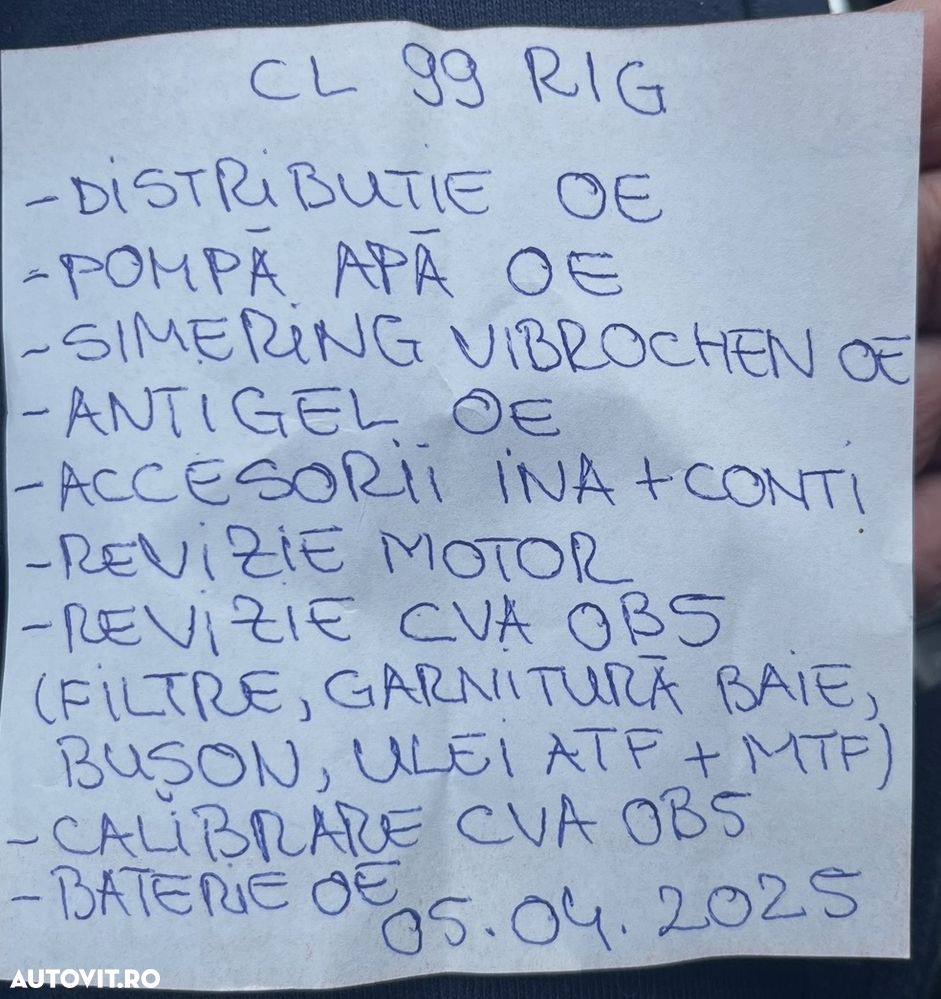 CL 99 RIG
- DISTRIBUTIE OE
- POMPĂ APĂ OE
- SIMERING VIBROCHEN OE
- ANTIGEL OE
- ACCESORII INA + CONTI
- REVIZIE MOTOR
- REVIZIE CVA OB5
(FILTRE, GARNITURĂ BAIE,
BUȘON, ULEI ATF + MTF)
- CALIBRARE CVA OB5
- BATERIE OE
05.04.2025
AUTOVIT.RO